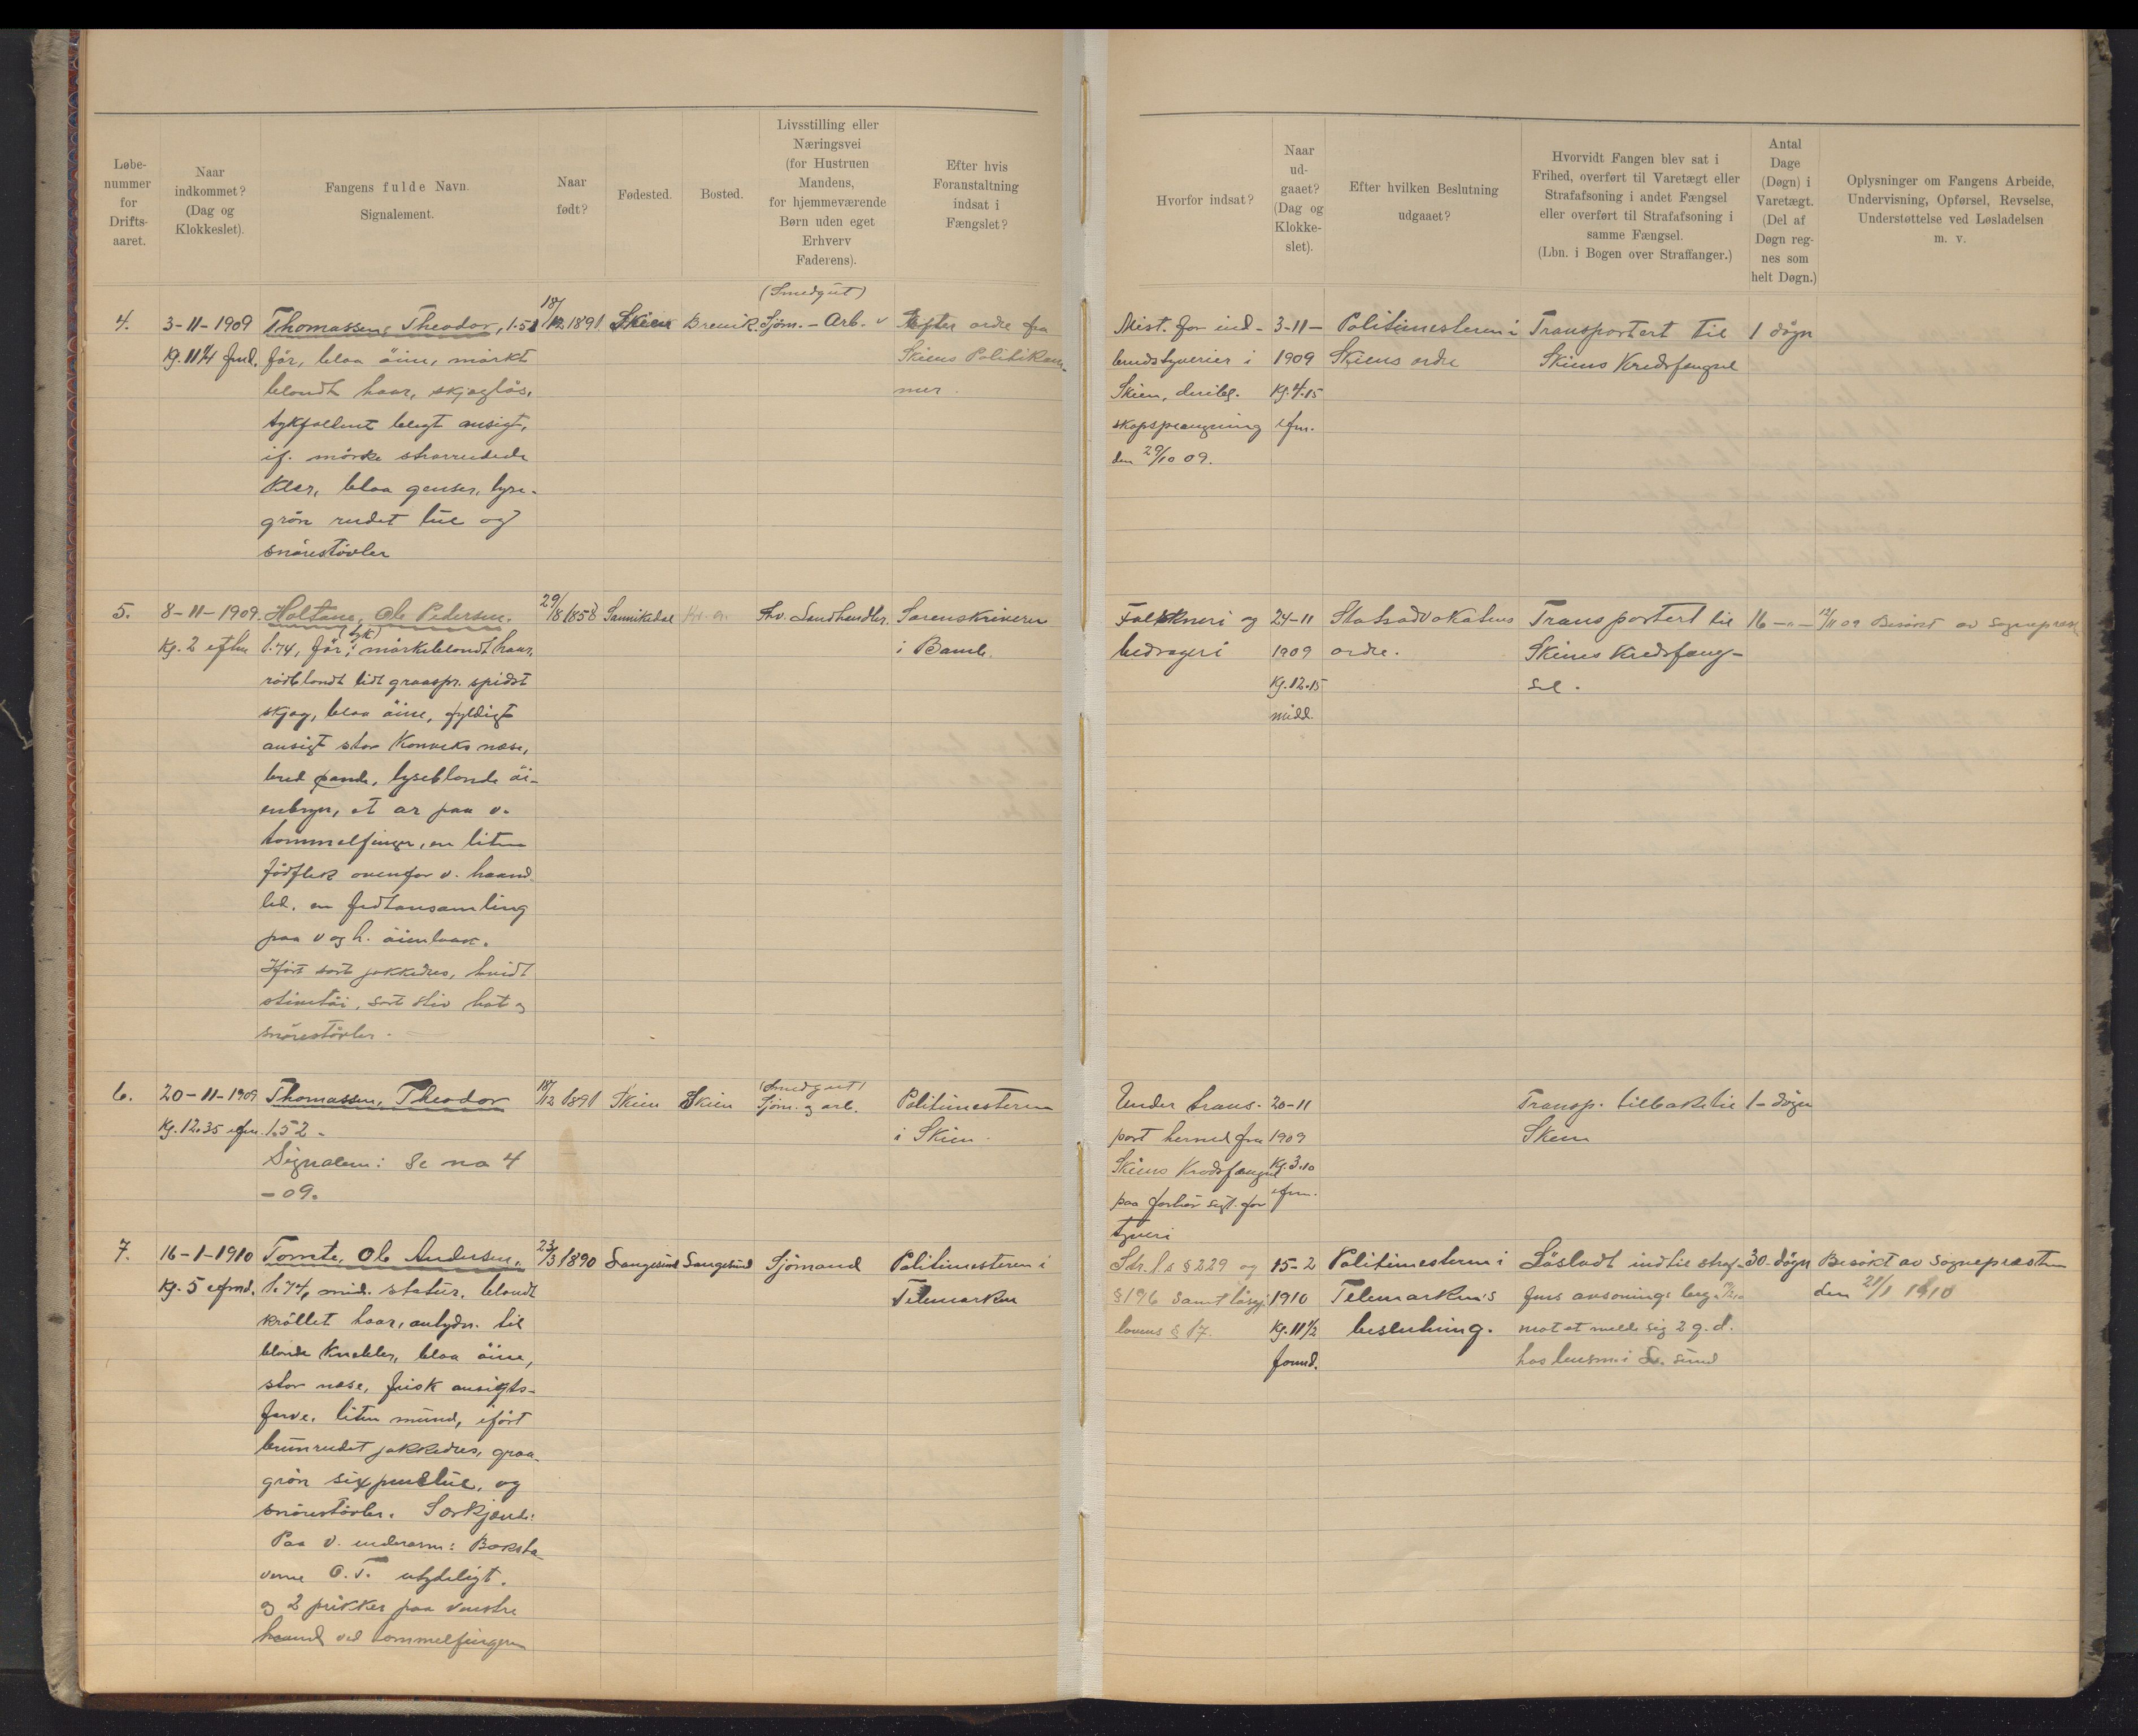 Løbe-
nummer
for
Drifts-
aaret.
Naar
indkommet?
(Dag og
Klokkeslet).
Fangens fulde Navn.
Signalement.
Naar
født?
Fødested.
Bosted.
Livsstilling eller
Næringsvei
(for Hustruen
Mandens,
for hjemmeværende
Børn uden eget
Erhverv
Faderens).
Efter hvis
Foranstaltning
indsat i
Fængslet?
Hvorfor indsat?
Naar
ud-
gaaet?
(Dag og
Klokke-
slet).
Efter hvilken Beslutning
udgaaet?
Hvorvidt Fangen blev sat i
Frihed, overført til Varetægt eller
Strafafsoning i andet Fængsel
eller overført til Strafafsoning i
samme Fængsel.
(Lbn. i Bogen over Straffanger.)
Antal
Dage
(Døgn) i
Varetægt.
(Del af
Døgn reg-
nes som
helt Døgn.)
Oplysninger om Fangens Arbeide,
Undervisning, Opførsel, Revselse,
Understøttelse ved Løsladelsen
m. v.
4.
3-11-1909
Kg. 11 1/4 fmd.
Thomassen, Theodor, 1.52
før, blaa öine, mörkt
blondt haar, skjæglös,
tykfallent blegt ansigt,
if. mörke storrudede
klær, blaa genser, lyse-
grön rudet lue og
snörestövler
18/12 1891
Skien
Brevik
(Smedgut)
Sjöm. - Arb.
Efter ordre fra
Skiens Politikam-
mer.
Mist. for ind-
brudstyverier i
Skien, deribl.
skapsprængning
den 29/10 09.
3-11-
1909
Kg. 4.15
efm.
Politimesteren i
Skiens ordre
Transportert til
Skiens Kredsfængsel
1 dögn
5.
8-11-1909.
Kg. 2 eftm
Holtane, Ole Pedersen.
1.74, før (tyk), mörkeblondt haar,
rödblondt lidt graaspr. spidst
skjæg, blaa öine, fyldigt
ansigt stor Konveks næse,
bred pande, lyseblonde öi-
enbryn, et ar paa v.
tommelfinger, en liten
födflek ovenfor v. haand
led. en fedtansamling
paa v og h. öienlaak.
Ifört sort jakkedres, hvidt
stivetöi, sort stiv hat og
snörestövler.
29/8 1858
Sannikedal
Kr. a.
Fhv. Landhandler.
Sorenskriveren
i Bamle.
Falskneri og
bedrageri
24-11
1909
Kg. 12.15
midd.
Statsadvokatens
ordre.
Transportert til
Skiens Kredsfæng-
sel.
16 -"-
12/11 09 Besökt av Sognepræst
6.
20-11-1909
Kg. 12.35 efm.
Thomassen, Theodor
1.52 -
Signalem: Se no 4
- 09.
18/12 1891
Skien
Skien
(Smedgut)
Sjöm. og arb.
Politimesteren
i Skien.
Under trans-
port herned fra
Skiens Kredsfængsel
paa forhör sigt. for
tyveri
20-11
1909
Kg. 3.10
efm.
Transp. tilbake til
Skien
1- dögn
7.
16-1-1910
Kg. 5 efmd.
Tomte, Ole Andersen,
1.74, mid. statur, blondt
kröllet haar, antydn. til
blonde Knebler, blaa öine,
stor næse, frisk ansigts-
farve, liten mund, ifört
brunrudet jakkedres, graa-
grön sixpenslue, og
snörestövler. Særkjende:
Paa v. underarm: Boksta-
verne O. T. utydeligt.
og 2 prikker paa venstre
haand ved tommelfingeren
23/3 1890
Langesund
Langesund
Sjömand
Politimesteren i
Telemarken
Str. l.s § 229 og
§ 196 samt lösgj.
lovens § 17.
15-2
1910
Kg. 11 1/2
formd.
Politimesteren i
Telemarken's
beslutning.
Lösladt indtil straf-
fens avsonings beg.
mot at melde sig 2 g. d.
hos lensm. i L. sund
30 dögn
Besökt av Sognepræsten
den 21/1 1910